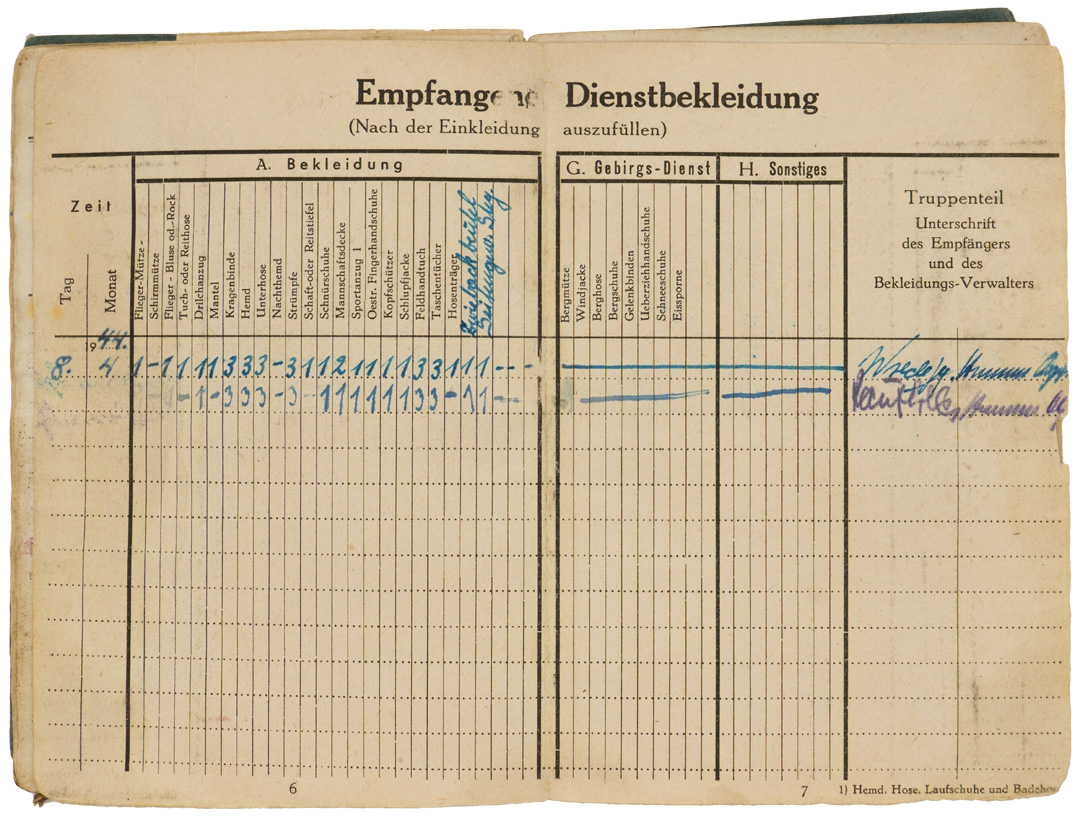 Empfangene Dienstbekleidung
(Nach der Einkleidung auszufüllen)
A. Bekleidung
G. Gebirgs-Dienst
H. Sonstiges
Zeit
Tag
Monat
Flieger-Mütze -
Schirmmütze
Flieger - Bluse od.-Rock
Tuch- oder Reithose
Drillchanzug
Mantel
Kragenbinde
Hemd
Unterhose
Nachthemd
Strümpfe
Schaft-oder Reitstiefel
Schnürschuhe
Mannschaftsdecke
Sportanzug 1
Oestr. Fingerhandschuhe
Kopfschützer
Schlupfjacke
Feldhandtuch
Taschentücher
Hosenträger
Zwiebackbeutel
Bergmütze
Windjacke
Berghose
Bergschuhe
Gelenkbinden
Ueberziehhandschuhe
Schneeschuhe
Eissporne
Truppenteil
Unterschrift
des Empfängers
und des
Bekleidungs-Verwalters
1944.
8. 4 1 - 1 1 1 1 3 3 3 - 3 1 1 2 1 1 1 1 3 3 1 1 1 - - -
- 1 - 3 3 3 - 3 1 1 1 1 1 1 3 3 - 1 1 - -
6
7
1) Hemd, Hose, Laufschuhe und Badehose